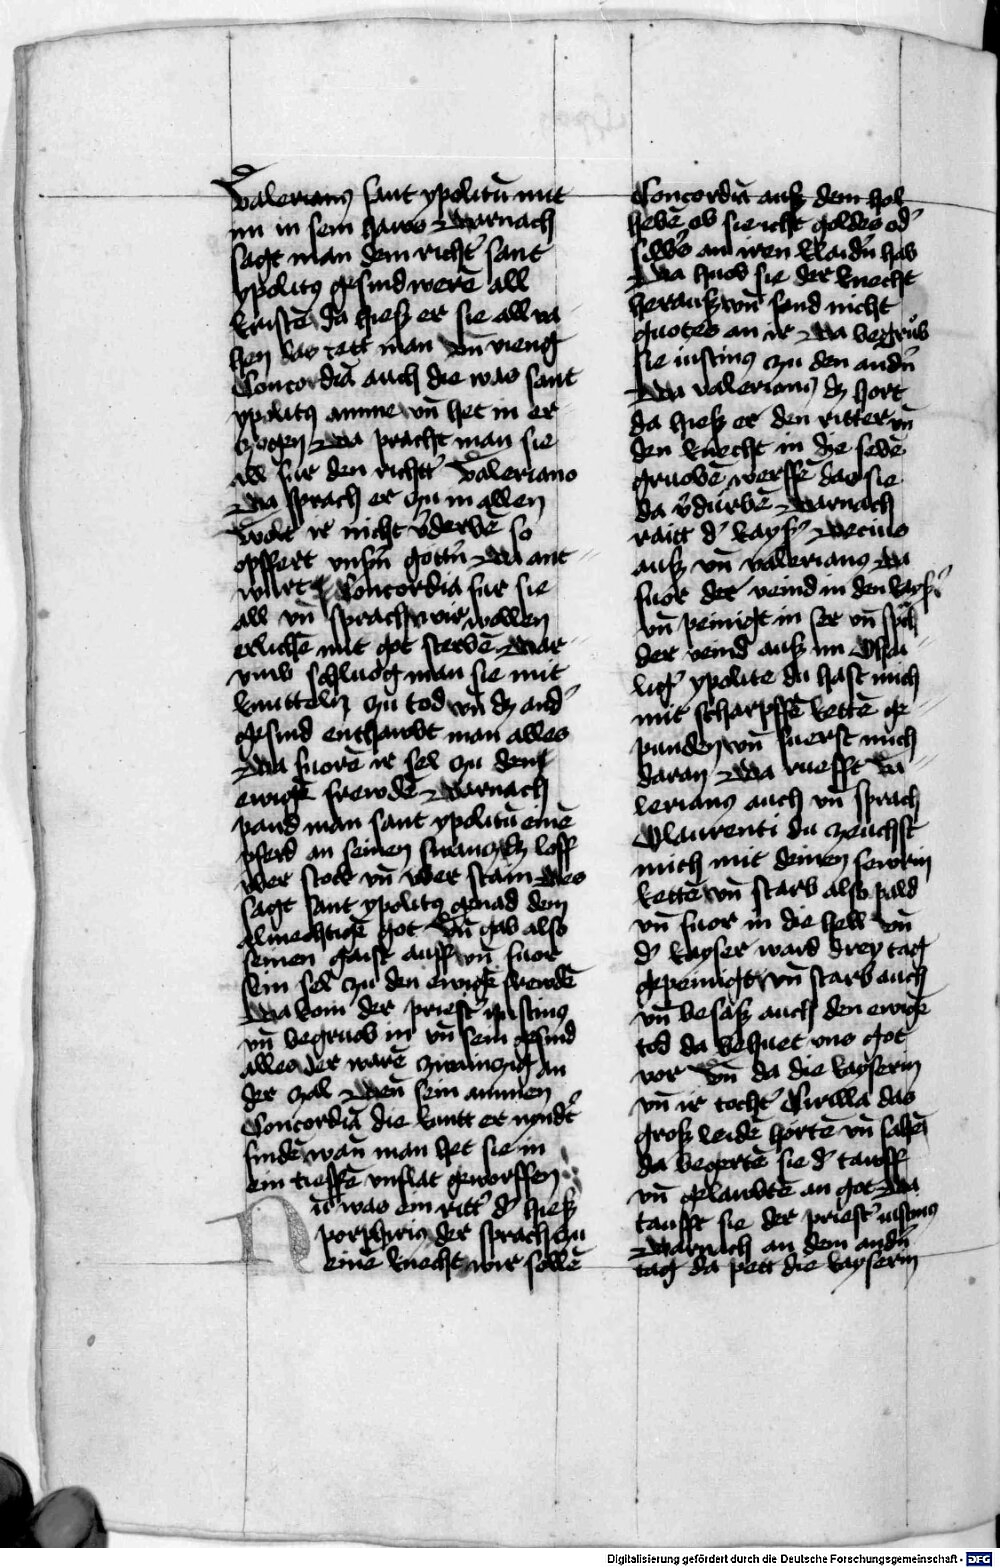 Valerianꝯ sant ypolitū mit
im in sein haws Darnach
sagt man dem richtˀ sant
ypolitꝯ gesind werē all
kristē da hieß er sie all va
hen das tett man vn̄ vieng
Concordiā auch die was sant
ypolitꝯ amme vn̄ het in er
zogen Da pracht man sie
all fur den richtˀ Valeriano
Da sprach er zu in allen
Wolt ir nicht v̓derbē so
opffert vnsˀn gottˀn Da ant
wurt Concordia fur sie
all vn̄ sprach wir wellen
erlichē mit got sterbē Dar
vmb schluog man sie mit
knutteln zu tod vn̄ dz andˀ
gesind enthawbt man alles
Da fuorē ir sel zu den
ewigē frewdē Darnach
pand man sant ypolitū einē
pferd an seinen swancz dz loff
vber stock vn̄ vber stain Des
sagt sant ypolitꝯ genad dem
almechtigē got Vn̄ gab also
seinen gaist auff vn̄ fuor
sein sel zu den ewigē frewdē
Da kom der priestˀ iustinꝯ
vn̄ begruob in vn̄ sein gesind
alles der warē zwainczig an
der zal Wen̄ sein ammen
Concordiā die kuntt er nyndˀt
findē wan̄ man het sie in
ein tieffē vnflat geworffen
Nū was ein rittˀ dˀ hieß
porphiriꝯ der sprach zu
einē knecht wir sollē
Concordiā auß dem hol
hebē ob sie icht goldes odˀ
silbˀs an iren klaidˀn hab
Da huob sie der knecht
herauß vn̄ fand nicht
guotes an ir Da begruob
sie iustinꝯ zu den andˀn
Da valerianꝯ dz hort
da hieß er den ritter vn̄
den knecht in die selbē
gruobē werffē das sie
da v̓durbē Darnach
raitt dˀ kaysˀ Decius
auß vn̄ valerianꝯ Da
fuor der veind in den kaysˀ
vn̄ peinigt in ser vn̄ sprach
der veind auß im O hai
ligˀ ypolite du hast mich
mit scharpffē kettē ge
punden vn̄ fuerst mich
daran Da ruefft va
lerianꝯ auch vn̄ sprach
O laurenti du zeuchst
mich mit deinen fewrin
kettē vn̄ starb also pald
vn̄ fuor in die hell vn̄
dˀ kayser ward drey tag
gepeinigt vn̄ starb auch
vn̄ besaß auch den ewigē
tod da behuet vns got
vor Vn̄ da die kayserin
vn̄ ir tochtˀ Cirilla das
groß leidē hortē vn̄ sahē
da begertē sie dˀ tauff
vn̄ gelaubtē an got Da
taufft sie der priestˀ iustinꝯ
Darnach an dem andˀn
tag da pett die kayserin
Digitalisierung gefördert durch die Deutsche Forschungsgemeinschaft - DFG